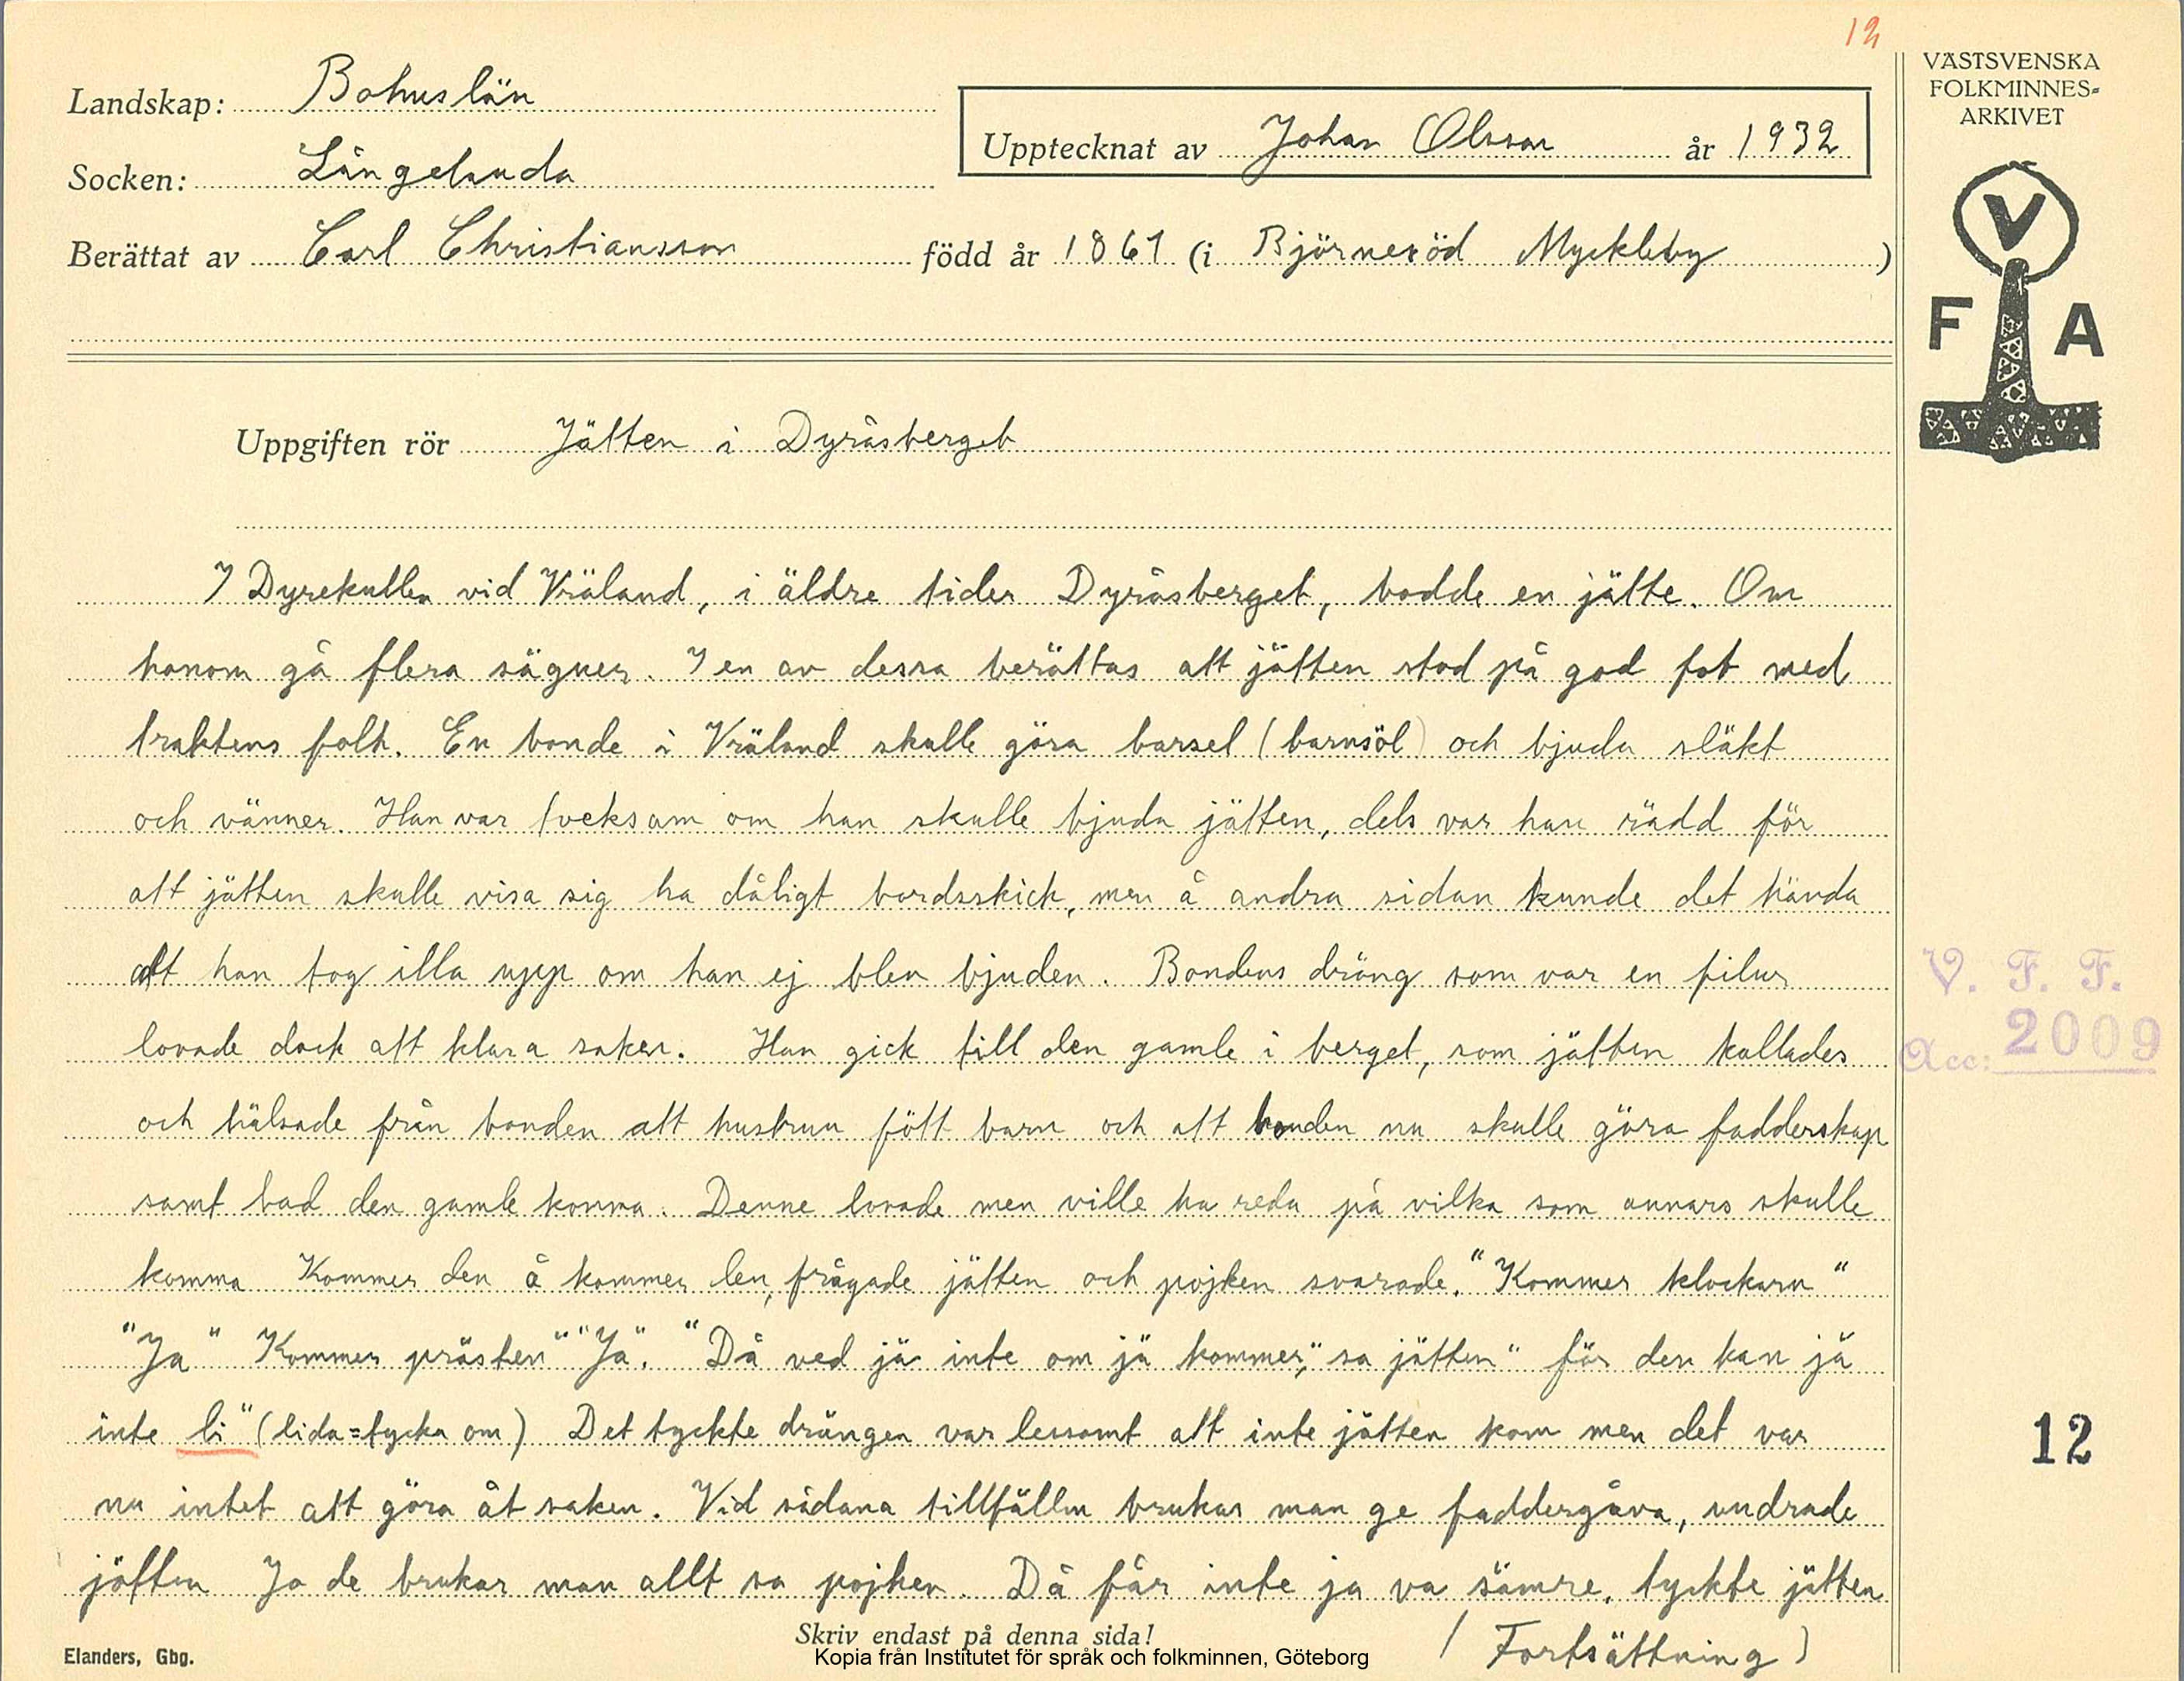 12
Landskap: Bohuslän
Socken: Långelanda
Berättat av Carl Christiansson född år 1861 (i Björneröd Myckleby )
Upptecknat av Johan Olsson år 1932
VÄSTSVENSKA
FOLKMINNES-
ARKIVET
V
F A
Uppgiften rör Jätten i Dyråsberget
I Dyrekullen vid Vräland, i äldre tider Dyråsberget, bodde en jätte. Om
honom gå flera sägner. I en av dessa berättas att jätten stod på god fot med
traktens folk. En bonde i Vräland skulle göra barsel (barnsöl) och bjuda släkt
och vänner. Han var tveksam om han skulle bjuda jätten, dels var han rädd för
att jätten skulle visa sig ha dåligt bordsskick, men å andra sidan kunde det hända
att han tog illa upp om han ej blev bjuden. Bondens dräng som var en filur
lovade dock att klara saken. Han gick till den gamle i berget, som jätten kallades
och hälsade från bonden att hustrun fött barn och att bonden nu skulle göra fadderskap
samt bad den gamle komma. Denne lovade men ville ha reda på vilka som annars skulle
komma Kommer den å kommer len, frågade jätten och pojken svarade. "Kommer klockarn"
"Ja" Kommer prästen" "Ja". "Då ved jä inte om jä kommer," sa jätten" för den kan jä
inte li" (lida=tycka om) Det tyckte drängen var lessamt att inte jätten kom men det var
nu intet att göra åt saken. Vid sådana tillfällen brukar man ge faddergåva, undrade
jätten Jo de brukar man allt sa pojken. Då får inte ja va sämre, tyckte jätten
(Fortsättning)
Skriv endast på denna sida!
Kopia från Institutet för språk och folkminnen, Göteborg
Elanders, Gbg.
V. F. F.
Acc: 2009
12